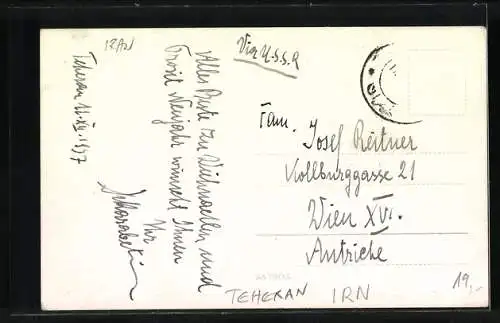 IRAN
Teheran 11-XII.1937
Alles Beste zu Weihnachten und
Prosit Neujahr wünscht Ihnen
Ihr
Via U.S.S.R
Fam. Josef Reitner
Kollburggasse 21
Wien XVI.
Autriche
TEHERAN IRN
19,-